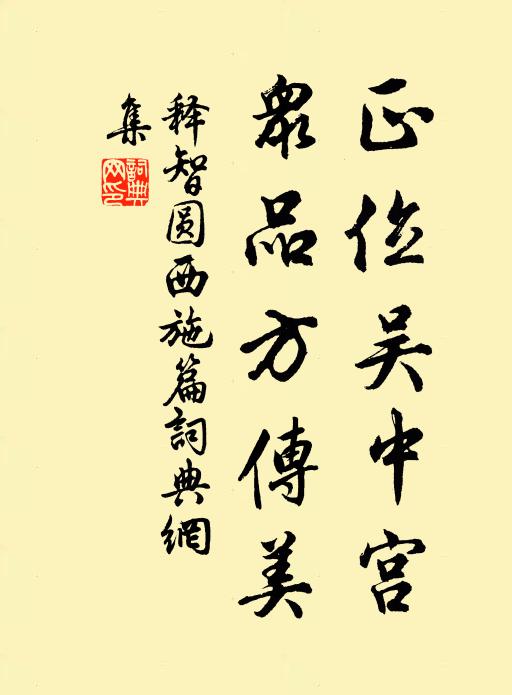 正位吴中宫
眾品方傳美
释智圆西施篇詞典網
集
詞典网印